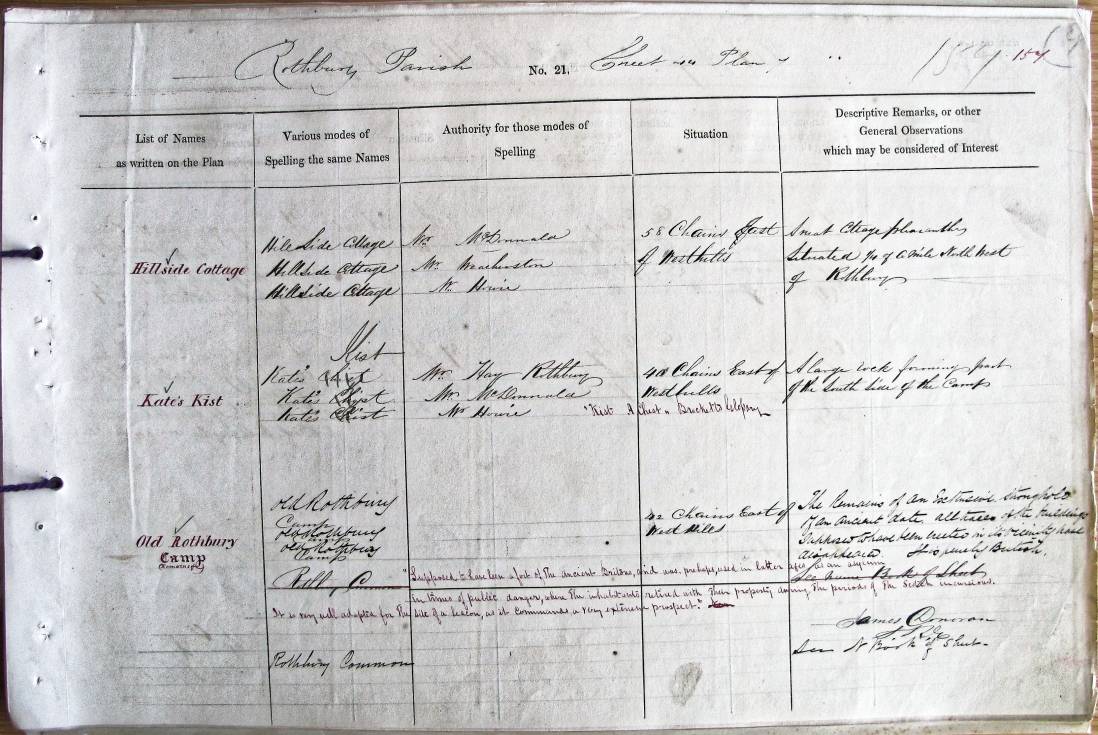 Rothbury Parish No. 21. Sheet Plan 154
List of Names
as written on the Plan
Various modes of
Spelling the same Names
Authority for those modes of
Spelling
Situation
Descriptive Remarks, or other
General Observations
which may be considered of Interest
Hillside Cottage
Hill Side Cottage
Hillside Cottage
Hillside Cottage
Mr. McDonnald
Mr.
Mr. Howie
58 Chains East
of Westhills
Small Cottage pleasantly
Situated ½ of a Mile North West
of Rothbury
Kate's Kist
Kist
Kate's
Kate's
Kate's
Mr. Hay Rothbury
Mr. McDonnald
Mr. Howie
"Kist A Chest" Brocketts Glossary
40 Chains East of
Westhills
A large rock forming part
of the South Side of the Camp
Old Rothbury
Camp
(Remains of)
Old Rothbury
Camp
Old Rothbury
Camp
Old Rothbury
Camp
42 Chains East of
West Hills
The Remains of an Extensive Stronghold
of an ancient date, all traces of the buildings
Supposed to have been erected in its vicinity have
disappeared. It is purely British.
See Name Book of Sheet
Common
"Supposed to have been a fort of the ancient Britons, and was, perhaps, used in latter ages as an asylum
in times of public danger, where the inhabitants retired with their property during the periods of the Scotch incursions.
It is very well adapted for the site of a beacon, as it commands a very extensive prospect."
James Donovan
Rothbury Common
See N Book of Sheet